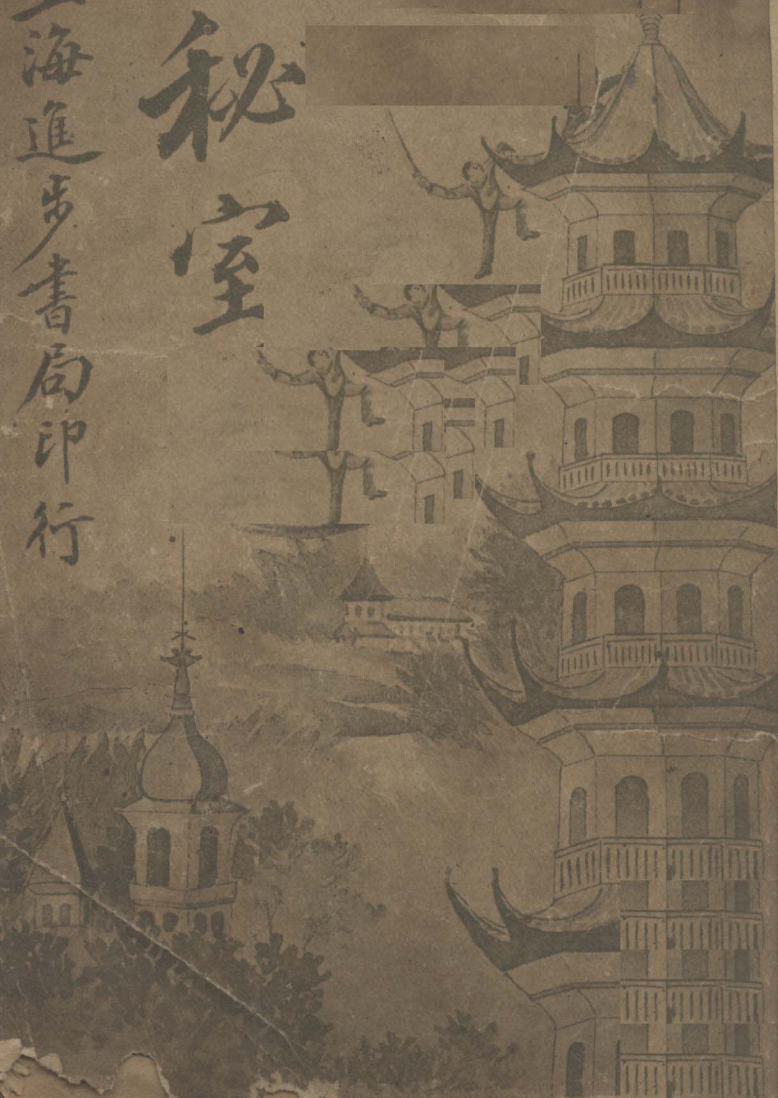 秘室
上海進步書局印行